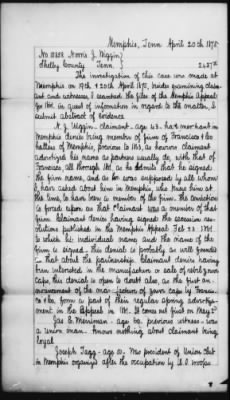 Memphis, Tenn April 20th 1875
No 10858 Norris J. Wiggin
Shelby County Tenn. 2427 75
The investigation of this case was made at
Memphis on 19th & 20th April 1875, besides examining claim-
ant and witnesses, I searched the files of the Memphis Appeal
for 1861, in quest of information in regard to the matter, &
submit abstract of evidence
N. J. Wiggin - claimant - age 43. hat merchant in
Memphis denies being member of firm of Francisco & Co
hatters of Memphis, previous to 1863, as however claimant
advertized his name as partners usually do, with that of
Francisco, all through 1861, as he admits that he signed
the firm name, and as he was supposed by all whom
I have asked about him in Memphis, who knew him at
the time, to have been a member of the firm, the conviction
is forced upon us that Claimant was a member of that
firm. Claimant denies having signed the secession res-
olutions published in the Memphis Appeal Feb 23 1861.
to which his individual name and the name of the
firm is signed. This denial is probably as well founded
as that about the partnership. Claimant denies having
been interested in the manufacture or sale of rebel gray
caps, this denial is open to doubt also, as the first an-
nouncement of the manufacture of gray caps by Francis-
co & Co, form a part of their regular spring advertise-
ment in the Appeal in 1861. It comes out first on May 2d
Jas E. Merriman - age 60. previous witness was
a Union man. Knows nothing about claimant being
loyal
Joseph Tagg - age 50. Was president of Union Club
in Memphis organized after the occupation by U.S. troops